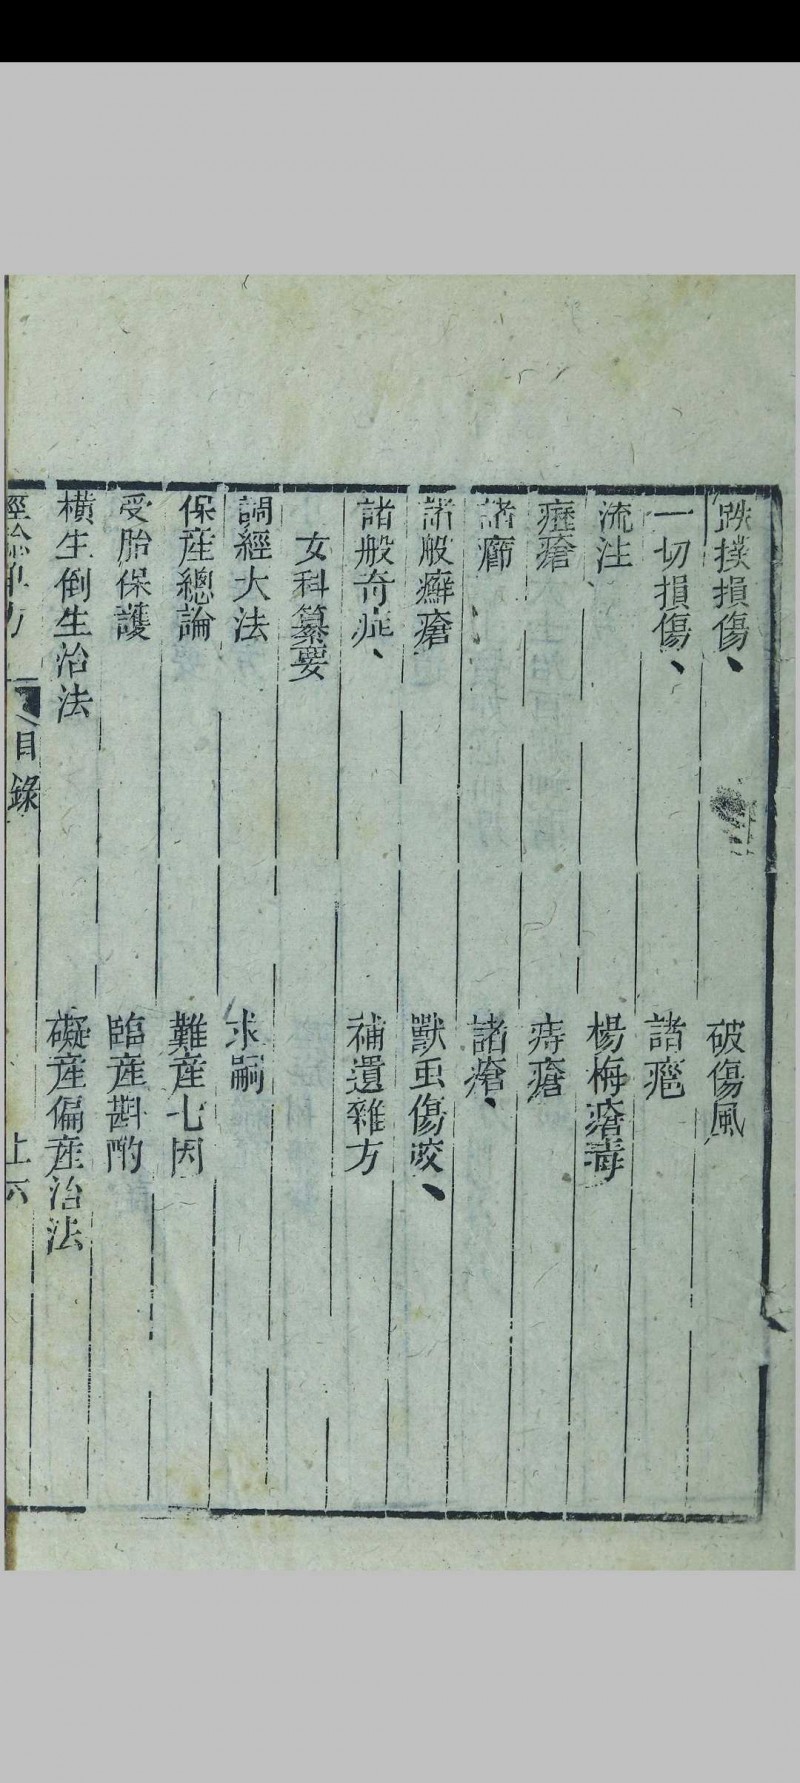 跌撲損傷、　破傷風
一切損傷、　諸瘢
流注　楊梅瘡毒
瘞瘡　痔瘡
諸癤　諸瘡、
諸般癬瘡　獸虫傷咬、
諸般奇症、　補遺雜方
女科纂要
調經大法　求嗣
保産總論　難産七因
受胎保護　臨産斟酌
橫生倒生治法　礙産偏産治法
經驗單方　目錄　上六